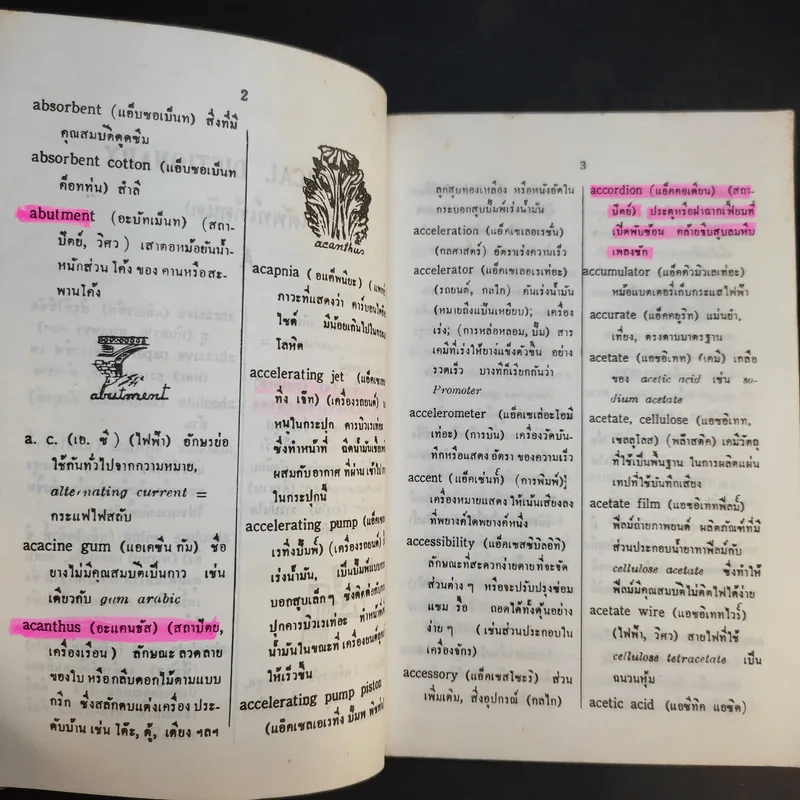 2
absorbent (แอ็บซอเบ็นท) สิ่งที่มี
คุณสมบัติดูดซึม
absorbent cotton (แอ็บซอเบ็นท
ค็อทท่น) สำลี
abutment (อะบัทเม็นท) (สถา-
ปัตย์, วิศว) เสาตอหม้อยันน้ำ-
หนักส่วนโค้งของ คานหรือสะ-
พานโค้ง
abutment
a. c. (เอ. ซี) (ไฟฟ้า) อักษรย่อ
ใช้กันทั่วไปจากความหมาย,
alternating current =
กระแสไฟสลับ
acacine gum (แอเคซีน กัม) ชื่อ
ยางไม้มีคุณสมบัติเป็นกาว เช่น
เดียวกับ gum arabic
acanthus (อะแคนธัส) (สถาปัตย์,
เครื่องเรือน) ลักษณะ ลวดลาย
ของใบ หรือกลีบดอกไม้ตามแบบ
กรีก ซึ่งสลักตบแต่งเครื่อง ประ-
ดับบ้าน เช่น โต๊ะ, ตู้, เตียง ฯลฯ
acanthus
acapnia (อแค็พนิยะ)
ภาวะที่แสดงว่า คาร์บอนได
ไซด์ มีน้อยเกินไปใน
โลหิต
accelerating jet
ทิ่ง เจ็ท) (เครื่องรถยนต์)
หนูในกระปุก คาร์บิวเรเท
ซึ่งทำหน้าที่ ฉีดน้ำมันเชื้อเ
ผสมกับอากาศ ที่ผ่านเข้าไป
ในกระปุกนี้
accelerating pump
เรทิ่งปั๊มพ์) (เครื่องรถยนต์)
เร่งน้ำมัน, เป็นปั๊มแบบ
บอกสูบเล็กๆ ซึ่งติดต่อกับ
ปุกคาร์บิวเรเท่อะ ทำหน้าที่
น้ำมันในขณะที่ เครื่องยนต์
ให้เร็วขึ้น
accelerating pump piston
(แอ็คเซลเอเรทิ่ง ปั๊มพ
3
ลูกสูบทองเหลือง หรือหนังอัดใน
กระบอกสูบปั๊มพ์เร่งน้ำมัน
acceleration (แอ็คเซเลอเรชั่น)
(กลศาสตร์) อัตราเร่งความเร็ว
accelerator (แอ็คเซเลอเรเท่อะ)
(รถยนต์, กลไก) คันเร่งน้ำมัน
(หมายถึงแป้นเหยียบ); เครื่อง
เร่ง; (การหล่อหลอม, ปั๊ม) สาร
เคมีที่เร่งให้ยางแข็งตัวขึ้น อย่าง
รวดเร็ว บางทีก็เรียกกันว่า
Promoter
accelerometer (แอ็คเซเล่อะโอมี
เท่อะ) (การบิน) เครื่องวัดบัน-
ทึกหรือแสดง อัตรา ของความเร็ว
accent (แอ็คเซ่นท์) (การพิมพ์)
เครื่องหมายแสดง ให้เน้นเสียงลง
ที่พยางค์ใดพยางค์หนึ่ง
accessibility (แอ็คเซสซิบิลอิที)
ลักษณะที่สะดวกง่ายดายที่จะขัด
ส่วนต่างๆ หรือจะปรับปรุงซ่อม
แซม รื้อ ถอดได้ทั้งคุ้นอย่าง
ง่ายๆ (เช่นส่วนประกอบใน
เครื่องจักร)
accessory (แอ็คเซสโซะรี) ส่วน
เพิ่มเติม, สิ่งอุปกรณ์ (กลไก)
accordion (แอ็คคอเดียน) (สถา-
ปัตย์) ประตูหรือฝาฉากเฟี้ยมที่
เปิดพับซ้อน คล้ายจีบสูบลมหีบ
เพลงชัก
accumulator (แอ็คคิวมิวเลเท่อะ)
หม้อแบตเตอรี่เก็บกระแสไฟฟ้า
accurate (แอ็คคยูริท) แม่นยำ,
เที่ยง, ตรงตามมาตรฐาน
acetate (แอซอิเทท) (เคมี) เกลือ
ของ acetic acid เช่น so-
dium acetate
acetate, cellulose (แอซอิเทท,
เซลลูโลส) (พลาสติค) เคมีวัตถุ
ที่ใช้เป็นพื้นฐาน ในการผลิตแผ่น
เทปที่ใช้บันทึกเสียง
acetate film (แอซอิเททฟิล์ม)
ฟิล์มถ่ายภาพยนต์ ผลิตภัณฑ์ที่มี
ส่วนประกอบน้ำยาทาฟิล์มกับ
cellulose acetate ซึ่งทำให้
ฟิล์มมีคุณสมบัติไม่ติดไฟได้ง่าย
acetate wire (แอซอิเททไวร์)
(ไฟฟ้า, วิศว) สายไฟที่ใช้
cellulose tetracetate เป็น
ฉนวนหุ้ม
acetic acid (แอซีทิค แอซิด)